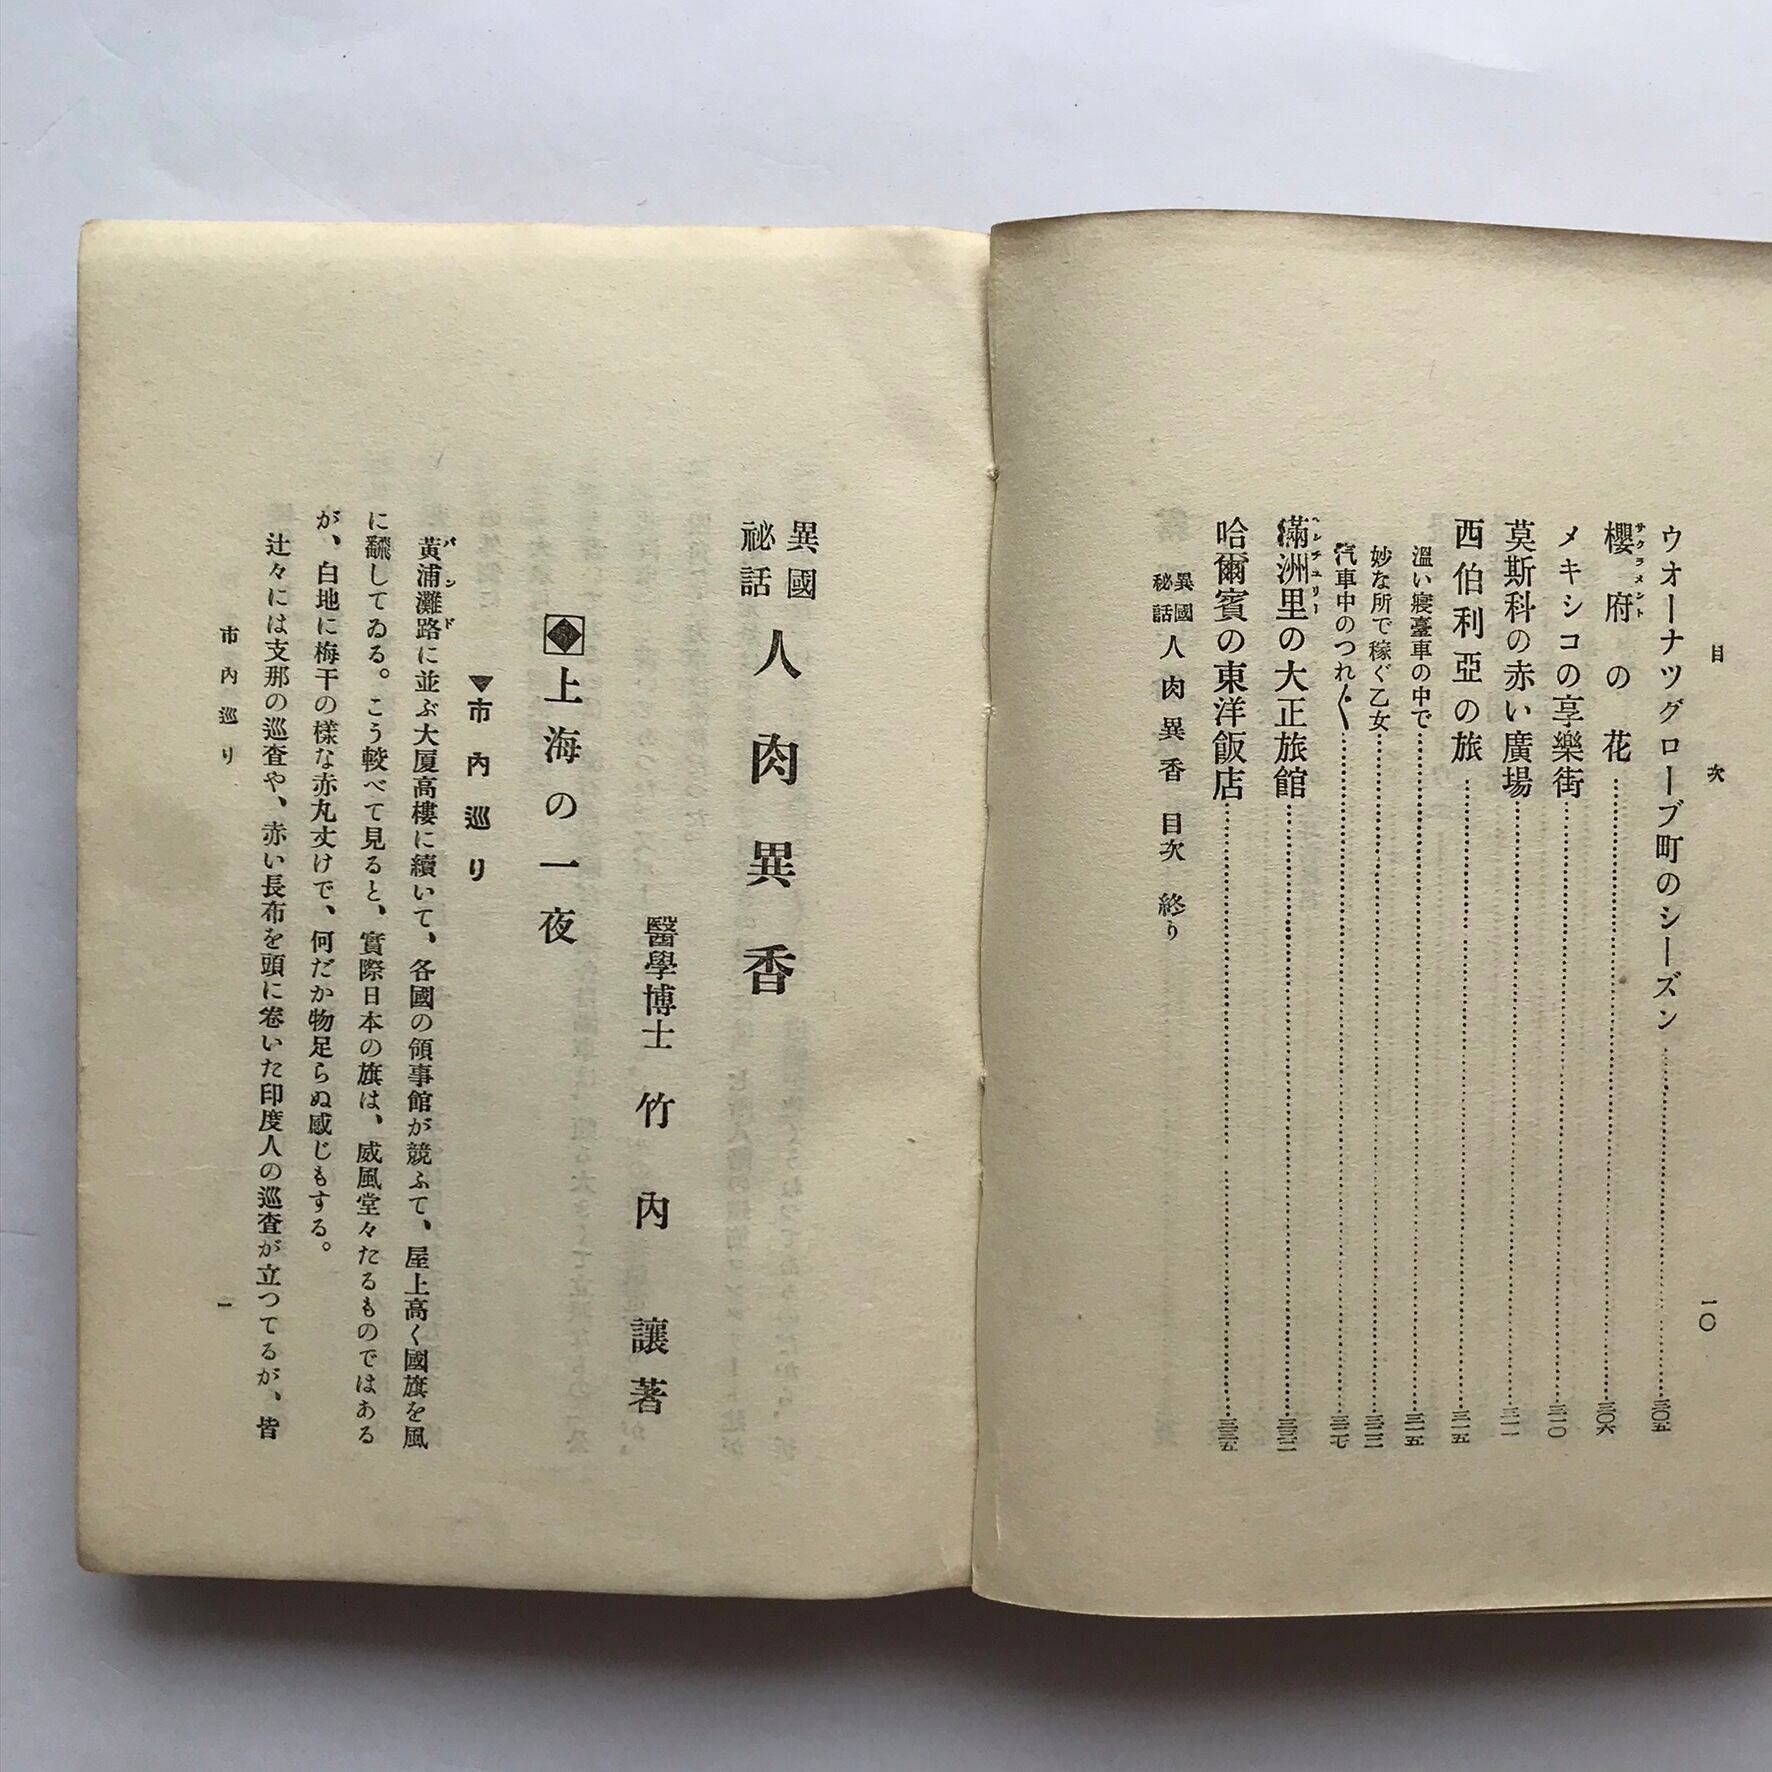 目次
一〇
ウオーナツグローブ町のシーズン……三〇五
櫻府の花……三〇六
サクラメント
メキシコの享樂街……三一〇
莫斯科の赤い廣場……三一一
西伯利亞の旅……三一五
溫い寢臺車の中で……三一五
妙な所で稼ぐ乙女……三二二
汽車中のつれ〴〵……三二七
滿洲里の大正旅館……三三二
哈爾賓の東洋飯店……三三五
異國祕話 人肉異香 目次 終り
異國祕話 人肉異香
醫學博士 竹內 讓著
上海の一夜
▼市內巡り
黃浦灘路に並ぶ大厦高樓に續いて、各國の領事館が競ふて、屋上高く國旗を風
バンド
に飜してゐる。こう較べて見ると、實際日本の旗は、威風堂々たるものではある
が、白地に梅干の樣な赤丸丈けで、何だか物足らぬ感じもする。
辻々には支那の巡査や、赤い長布を頭に卷いた印度人の巡査が立つてるが、皆
市內巡り
一